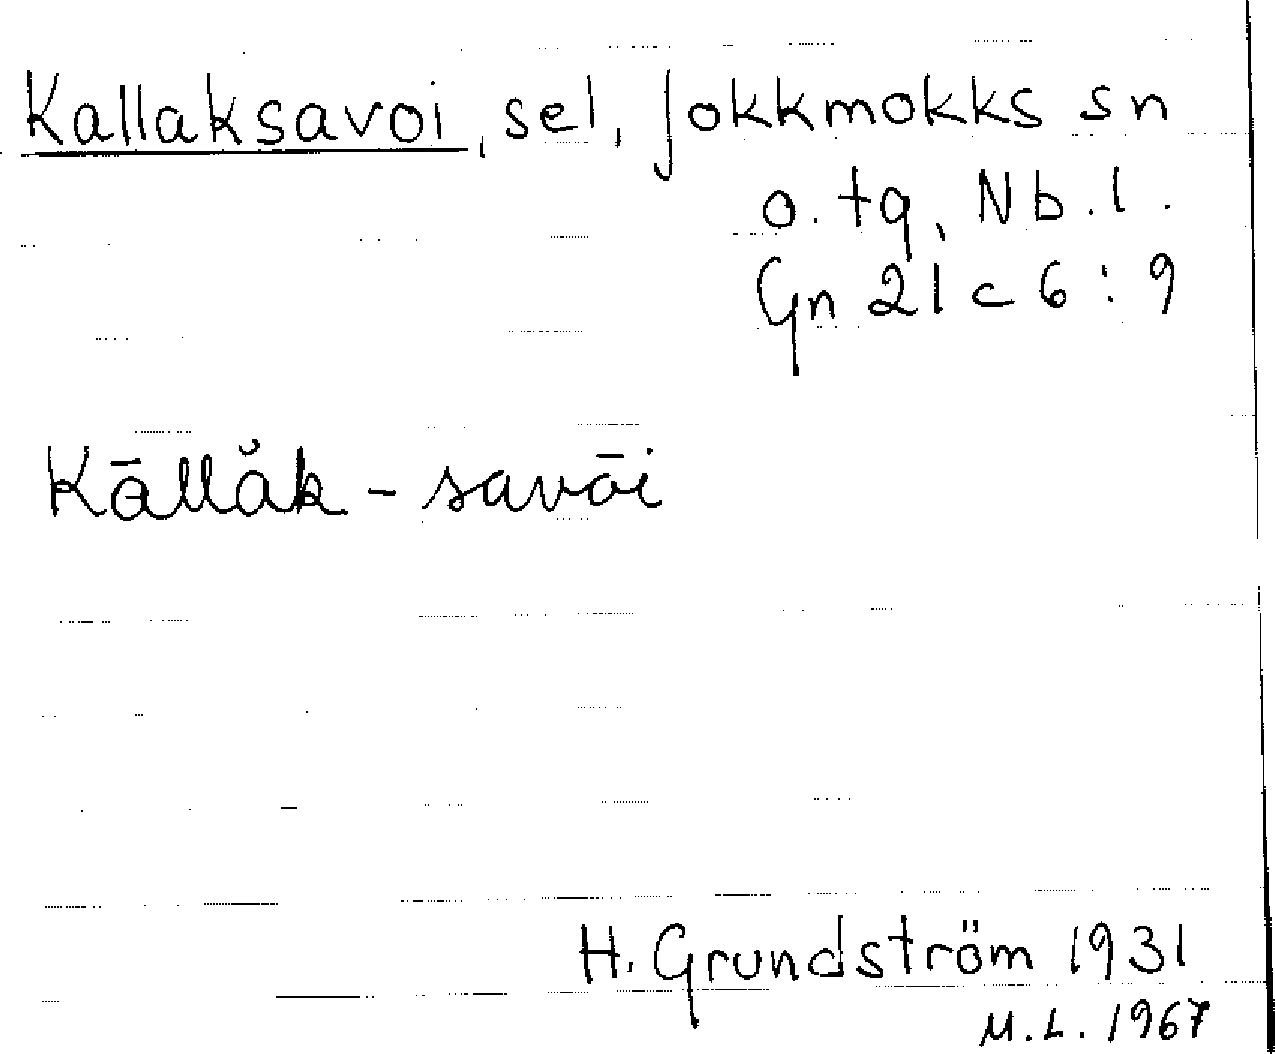 Kallaksavoi, sel, Jokkmokks sn
o. tg, Nb.l.
Gn 21 c 6:9
Kāllăk-savōi
H. Grundström 1931
M.L. 1967